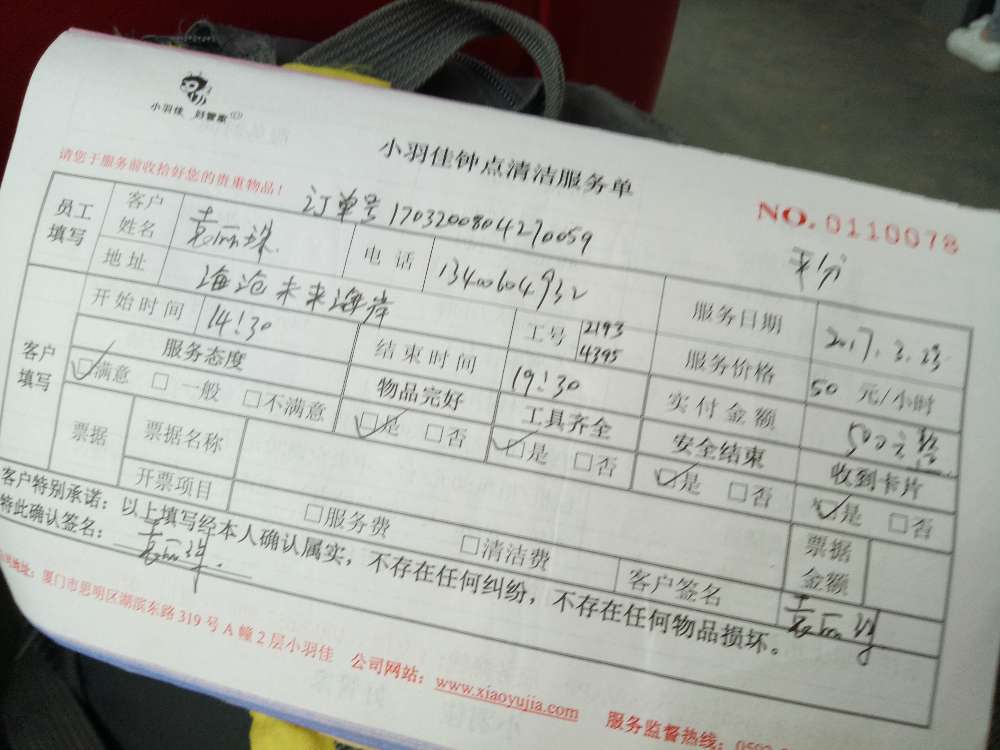 小羽佳 好管家
小羽佳钟点清洁服务单
请您于服务前收拾好您的贵重物品！
NO. 0110078
订单号 1703200804270059
平分
员工填写 客户姓名 袁丽珠 电话 13400604932 服务日期 2017.3.23
地址 海沧未来海岸 工号 2193 4395 服务价格 50 元/小时
开始时间 14:30 结束时间 19:30 实付金额 500元
客户填写 服务态度 物品完好 工具齐全 安全结束 收到卡片
☑满意 □一般 □不满意 ☑是 □否 ☑是 □否 ☑是 □否 ☑是 □否
票据 票据名称 票据金额
开票项目 □服务费 □清洁费 客户签名 袁丽珠
客户特别承诺：以上填写经本人确认属实，不存在任何纠纷，不存在任何物品损坏。
特此确认签名：袁丽珠
公司地址：厦门市思明区湖滨东路 319 号 A 幢 2 层小羽佳 公司网站：www.xiaoyujia.com 服务监督热线：0592